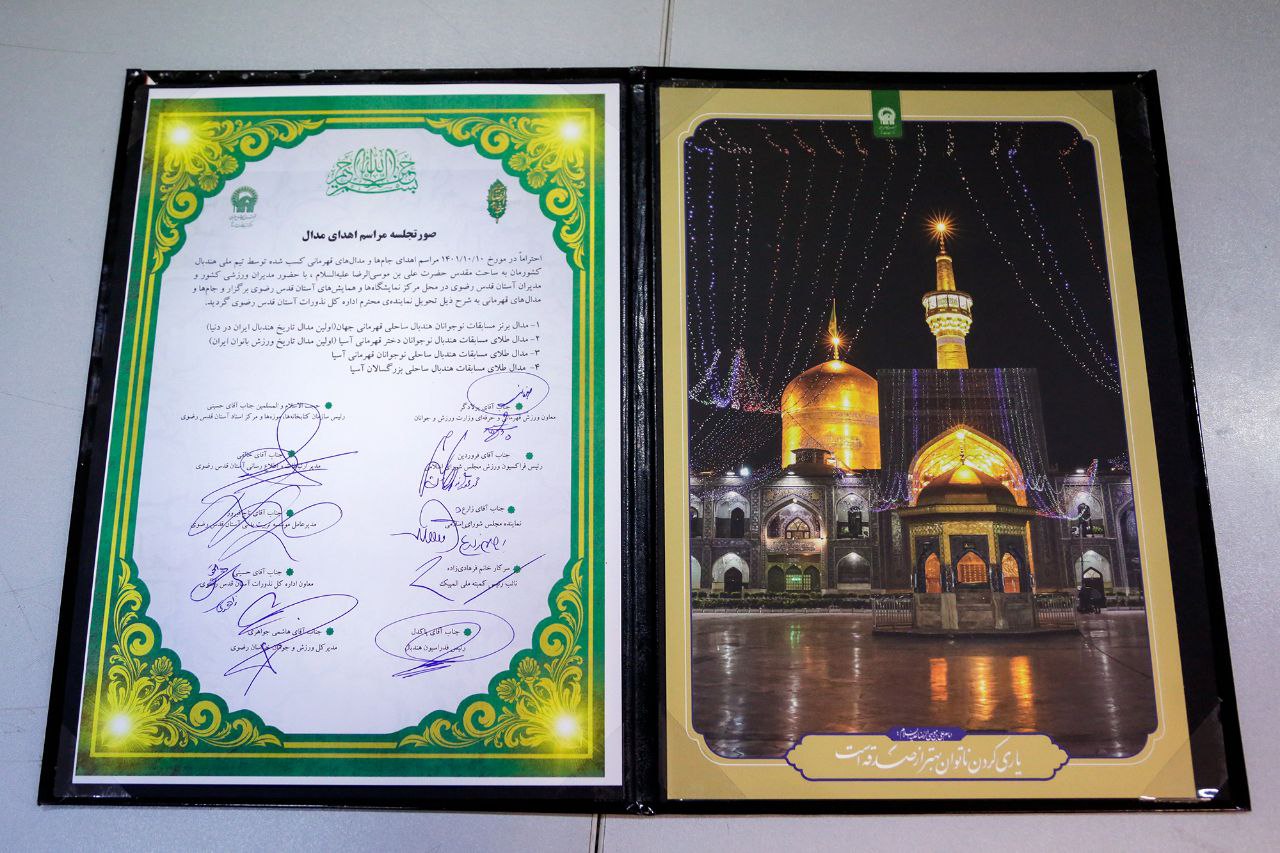 بسم الله الرحمن الرحیم
صورتجلسه مراسم اهدای مدال
احتراماً در مورخ ۱۴۰۱/۱۰/۱۰ مراسم اهدای جام‌ها و مدال‌های قهرمانی کسب شده توسط تیم ملی هندبال
کشورمان به ساحت مقدس حضرت علی بن موسی‌الرضا علیه‌السلام ، با حضور مدیران ورزشی کشور و
مدیران آستان قدس رضوی در محل مرکز نمایشگاه‌ها و همایش‌های آستان قدس رضوی برگزار و جام‌ها و
مدال‌های قهرمانی به شرح ذیل تحویل نماینده‌ی محترم اداره کل نذورات آستان قدس رضوی گردید.
۱- مدال برنز مسابقات نوجوانان هندبال ساحلی قهرمانی جهان(اولین مدال تاریخ هندبال ایران در دنیا)
۲- مدال طلای مسابقات هندبال نوجوانان دختر قهرمانی آسیا (اولین مدال تاریخ ورزش بانوان ایران)
۳- مدال طلای مسابقات هندبال ساحلی نوجوانان قهرمانی آسیا
۴- مدال طلای مسابقات هندبال ساحلی بزرگسالان آسیا
جناب آقای پولادگر
معاون ورزش قهرمانی و حرفه‌ای وزارت ورزش و جوانان
حجت الاسلام و المسلمین جناب آقای حسینی
رئیس سازمان کتابخانه‌ها، موزه‌ها و مرکز اسناد آستان قدس رضوی
جناب آقای فروردین
رئیس فراکسیون ورزش مجلس شورای اسلامی
جناب آقای
مدیر ارتباطات و اطلاع رسانی آستان قدس رضوی
جناب آقای زارع
نماینده مجلس شورای اسلامی
جناب آقای
مدیرعامل موسسه تربیت بدنی آستان قدس رضوی
سرکار خانم فرهادی‌زاده
نائب رئیس کمیته ملی المپیک
جناب آقای
معاون اداره کل نذورات آستان قدس رضوی
جناب آقای پاکدل
رئیس فدراسیون هندبال
جناب آقای هاشمی جواهری
مدیر کل ورزش و جوانان خراسان رضوی
یاری کردن ناتوان بهتر از صدقه است